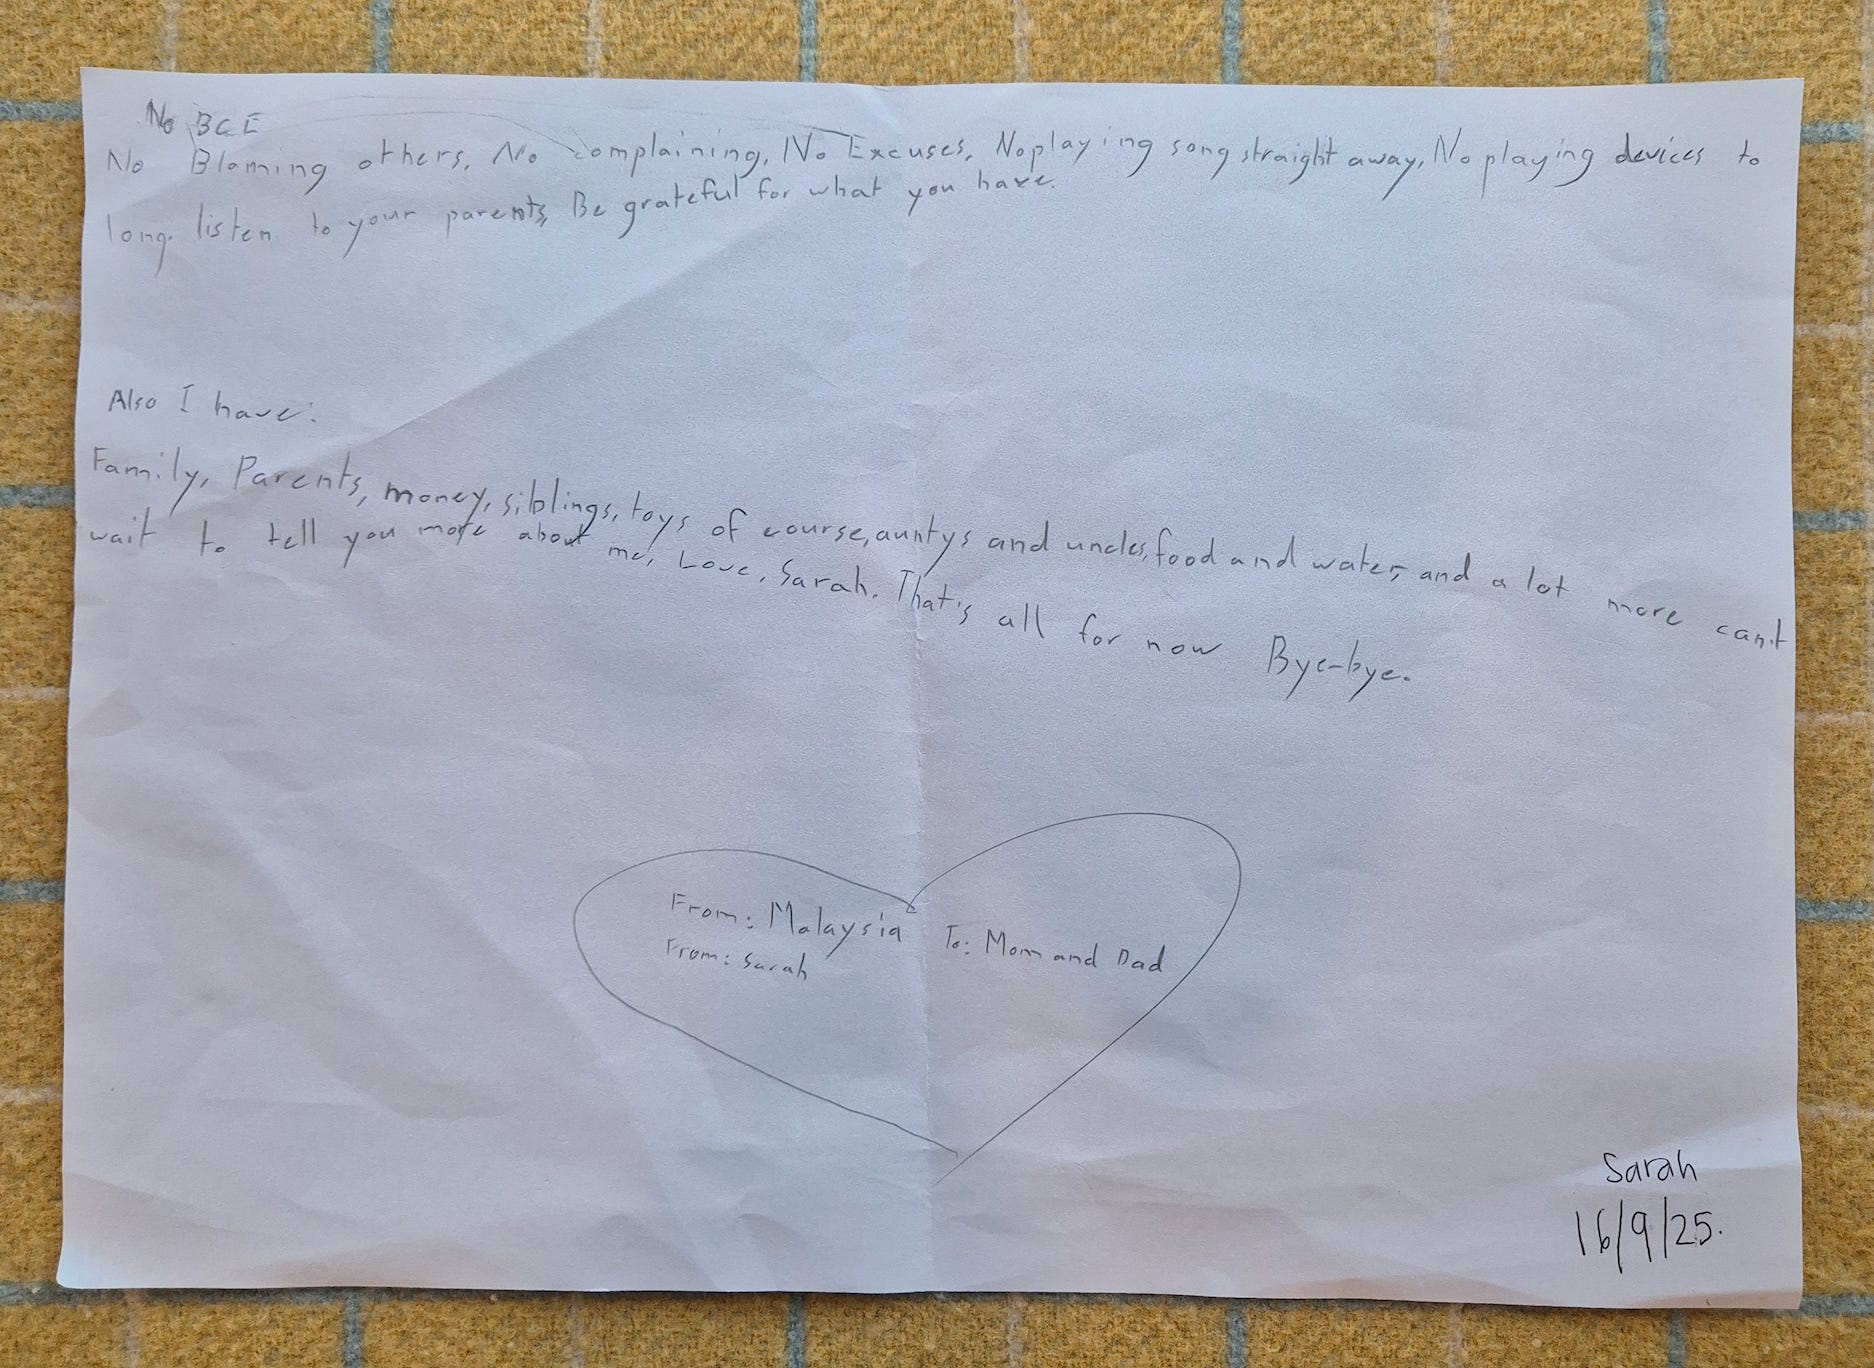 No BCE
No Blaming others, No complaining, No Excuses, No playing song straight away, No playing devices to
long. listen to your parents, Be grateful for what you have.
Also I have:
Family, Parents, money, siblings, toys of course, auntys and uncles, food and water, and a lot more can't
wait to tell you more about me, Love, Sarah. That's all for now Bye-bye.
From: Malaysia
From: Sarah
To: Mom and Dad
Sarah
16/9/25.